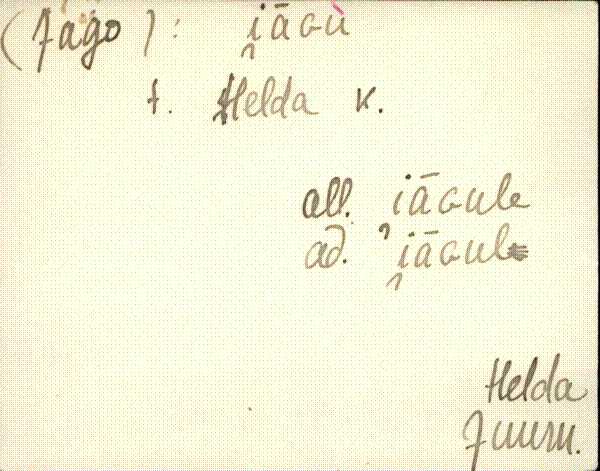 (Jägo): i̯āGu
t. Helda k.
all. i̯āGule
ad. i̯āGul
Helda
Juuru.